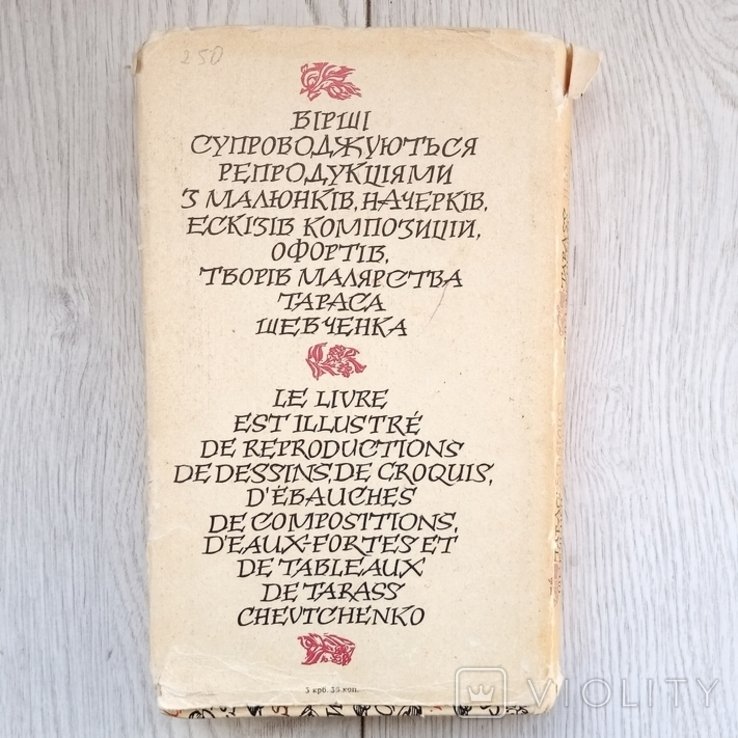 250
ВІРШІ
СУПРОВОДЖУЮТЬСЯ
РЕПРОДУКЦІЯМИ
З МАЛЮНКІВ, НАЧЕРКІВ,
ЕСКІЗІВ КОМПОЗИЦІЙ,
ОФОРТІВ,
ТВОРІВ МАЛЯРСТВА
ТАРАСА
ШЕВЧЕНКА
LE LIVRE
EST ILLUSTRÉ
DE REPRODUCTIONS
DE DESSINS, DE CROQUIS,
D'ÉBAUCHES
DE COMPOSITIONS,
D'EAUX-FORTES ET
DE TABLEAUX
DE TARASS
CHEVTCHENKO
VIOLITY